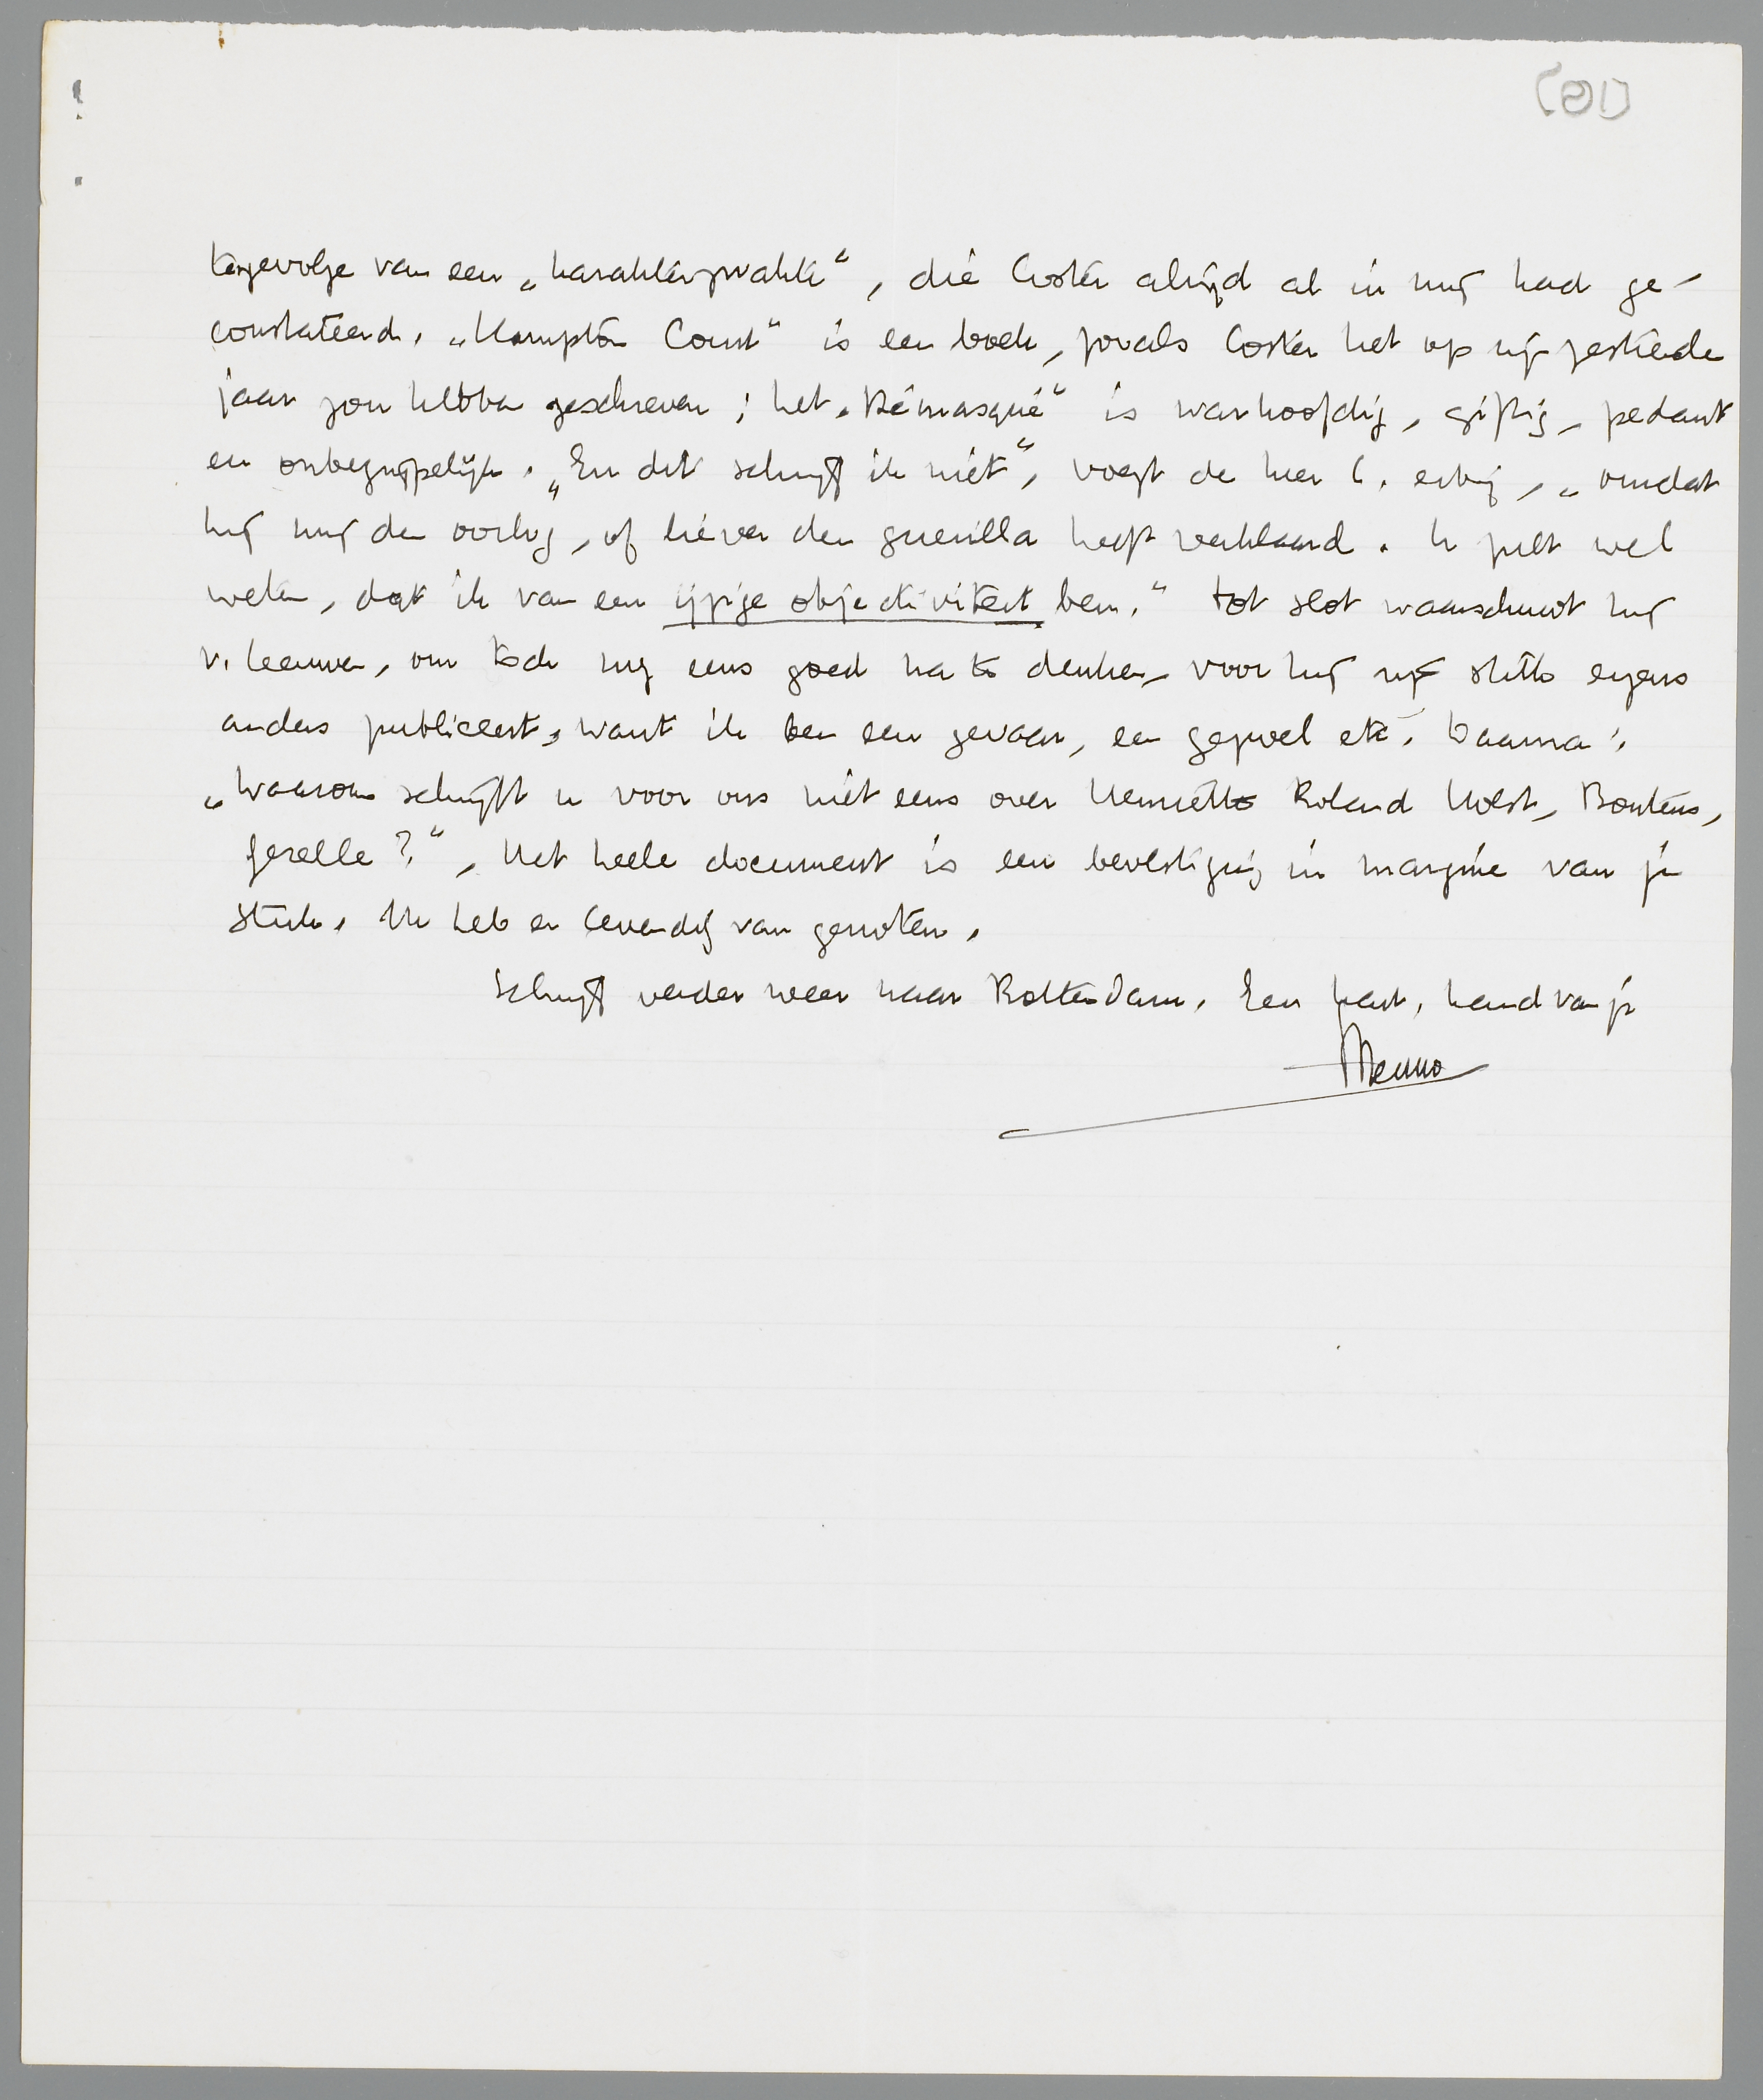 tengevolge van een „karakterzwakte“, die Coster altijd al in mij had ge-
constateerd. „Hampton Court“ is een boek, zooals Coster het op zijn zestiende
jaar zou hebben geschreven; het „Démasqué“ is warhoofdig, giftig, pedant
en onbegrijpelijk. „En dit schrijf ik niet“, voegt de heer C. erbij, „omdat
hij mij den oorlog, of liever den guerilla heeft verklaard. U zult wel
weten, dat ik van een ijzige objectiviteit ben.“ Tot slot waarschuwt hij
v. Leeuwen, om toch nog eens goed na te denken, voor hij zijn stuk ergens
anders publiceert, want ik ben een gevaar, een gezwel etc. Daarna:
„Waarom schrijft u voor ons niet eens over Henriëtte Roland Holst, Boutens,
Gezelle?“, Het heele document is een bevestiging in margine van je
stuk. Ik heb er levendig van genoten.
Schrijf verder weer naar Rotterdam. Een hart. hand van je
Menno